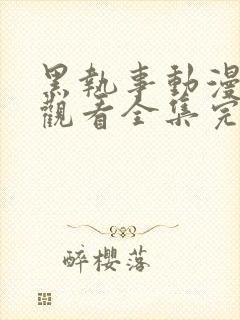 黑執事動漫
觀看全集完
醉櫻落